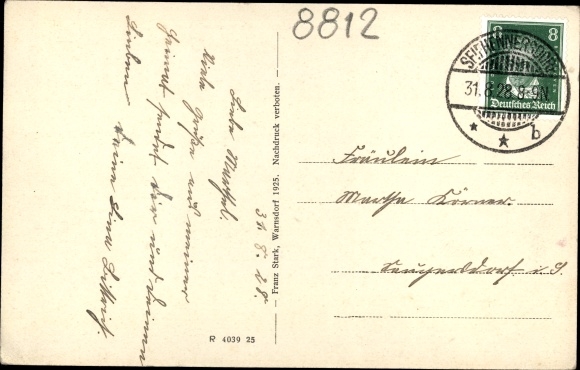 8812
Liebe Marthel.
31. 8. 28.
Viele Grüße aus meiner
Heimat sendet Dir und Deinen
Lieben Deine Lina
Franz Stark, Warnsdorf 1925. Nachdruck verboten.
R 4039 25
8 8
Deutsches Reich
SEIFHENNERSDORF
31.8.28.8-9N
* * b
Fräulein
Martha Körner.
Leugersdorf i. S.